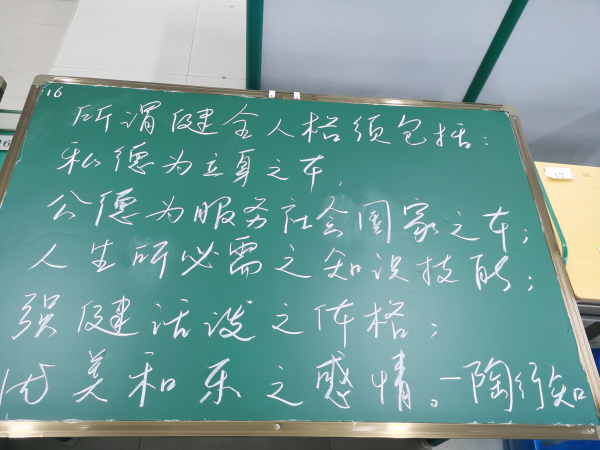 16
所谓健全人格须包括：
私德为立身之本，
公德为服务社会国家之本；
人生所必需之知识技能；
强健活泼之体格；
优美和乐之感情。—陶行知
16